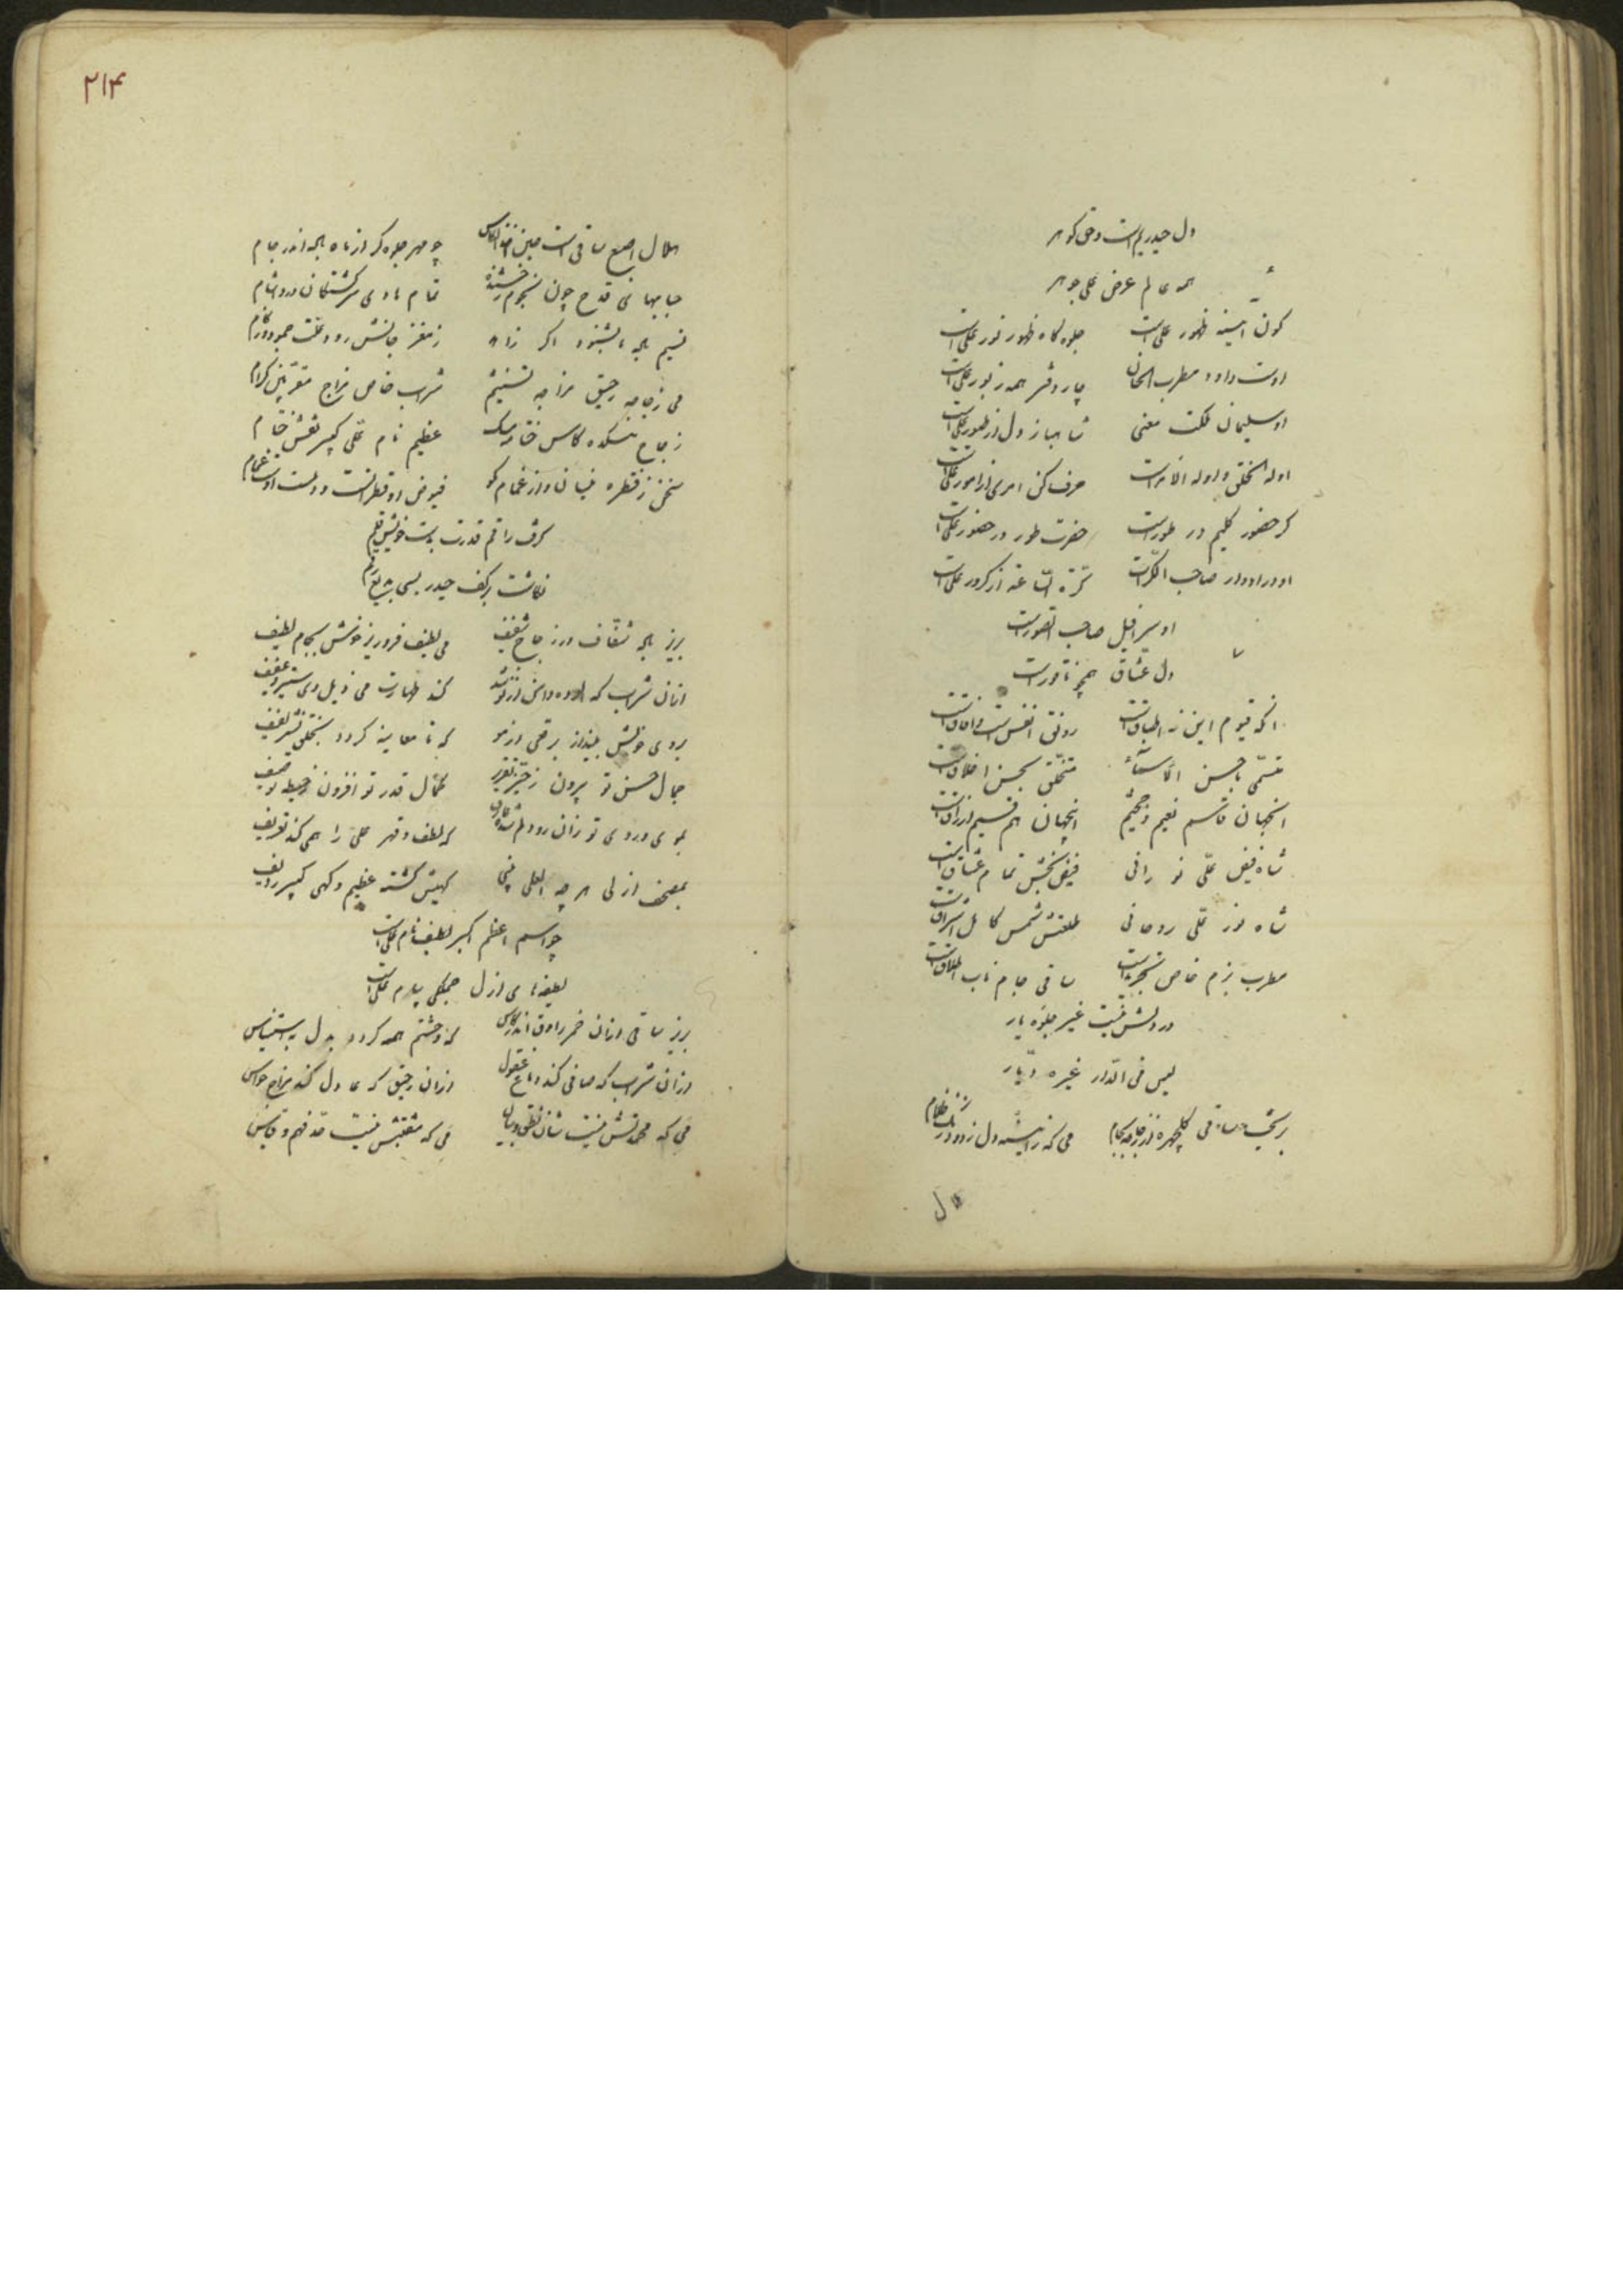 دل حیدر یم است و حق گوهر
همه عالم عرض علی جوهر
کون آیینه ظهور علی است جلوه گاه ظهور نور علی است
اوست داود مطرب الحان چار دفتر همه زبور علی است
او سلیمان ملکت معنی شاهباز دل از طیور علی است
او له الخلق و او له الامر است حرف کن امری از امور علی است
گر حضور کلیم در طور است حضرت طور در حضور علی است
او در ادوار صاحب الکرات کره الساعة از کرور علی است
او سرافیل صاحب الصور است
دل عشاق همچو ناقور است
آنکه قیوم این نه اطباق است رونق انفس است و آفاق است
متسمی باحسن الاسماء متخلق بحسن اخلاق است
آنجهان قاسم نعیم و جحیم اینجهان هم قسیم ارزاق است
شاه فیض علی نورانی فیض بخش تمام عشاق است
شاه نور علی روحانی طلعتش شمس کامل اشراق است
مطرب بزم خاص تجرید است ساقی جام ناب اطلاق است
در دلش نیست غیر جلوه یار
لیس فی الدار غیره دیار
بریخت ساقی گلچهره از زجاجه بجام می که زاینه دل زدود زنگ ظلام
هلال
۲۱۴
هلال اصبع ساقی است مبین اخذ الکاس چو مهر جلوه گر از ماه باده اندر جام
حبابهای قدح چون نجوم رخشنده تمام هادی سرگشتگان در دل شام
نسیم باده بشنود اگر زاهد ز مغز جانش رود علت جمود و زکام
می زجاجه رحیق مزاجه تسنیم شراب خاص مزاج مقربین کرام
زجاج میکده کاس ختامه مسک عظیم نام علی کبیر نقش ختام
سخن ز قطره نیسان و از غمام مگو فیوض او قطراتست و دست اوست غمام
گرفت راقم قدرت بدست خویش قلم
نگاشت بر کف حیدر بسی بدیع رقم
بریز باده شفاف در زجاج شفیف می لطیف فرو ریز خوش بجام لطیف
ازان شراب که آلوده دامن ار نوشد کند طهارت می ذیل وی ستیر و عفیف
بروی خویش بینداز برقعی از مو که تا معاینه گردد بخلق نشر لفیف
جمال حسن تو بیرون ز حیز تقریر کمال قدر تو افزون ز حیطه توصیف
بموی و روی تو زان رو دلم شده عارف که لطف و قهر علی را همی کند تعریف
بمصحف ازلی هر چه العلی بینی گهیش گشته عظیم و گهی کبیر ردیف
چو اسم اعظم اکبر لطیف نام علی است
لطیفه های ازل جملگی پیام علی است
بریز ساقی ازان خمر راوق اندر کاس که وحشتم همه گردد بدل به استیناس
ازان شراب که صافی کند دماغ عقول ازان رحیق که عادل کند مزاج حواس
می که محمدتش نیست شان نطق و بیان می که منقبتش نیست حد فهم و قیاس